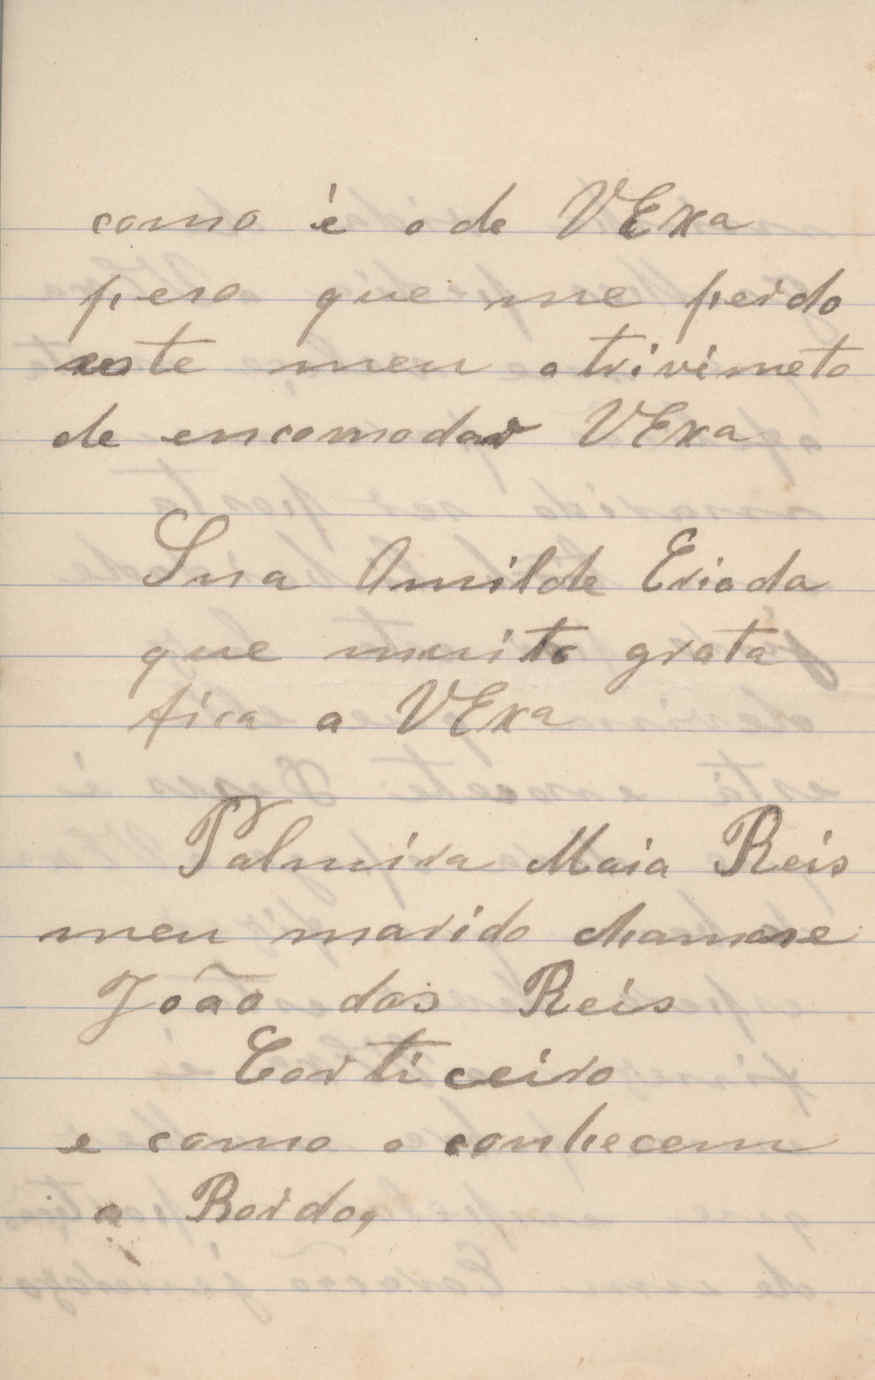 como é o de VExa
pesa que me perdo
este meu atrivimeto
de encomodar VExa
Sua Omilde Criada
que muito grata
fica a VExa
Palmira Maia Reis
meu marido chamase
João dos Reis
Corticeiro
e como o conhecem
a Bordo,